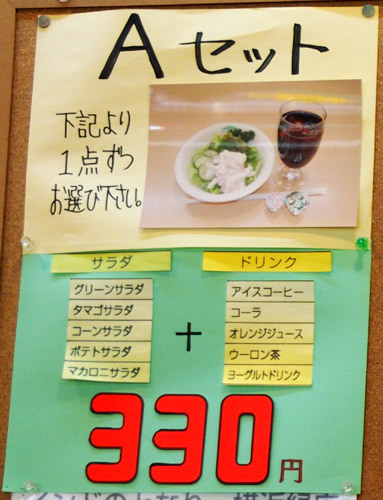 Aセット
下記より
1点ずつ
お選び下さい。
サラダ
グリーンサラダ
タマゴサラダ
コーンサラダ
ポテトサラダ
マカロニサラダ
+
ドリンク
アイスコーヒー
コーラ
オレンジジュース
ウーロン茶
ヨーグルトドリンク
330円